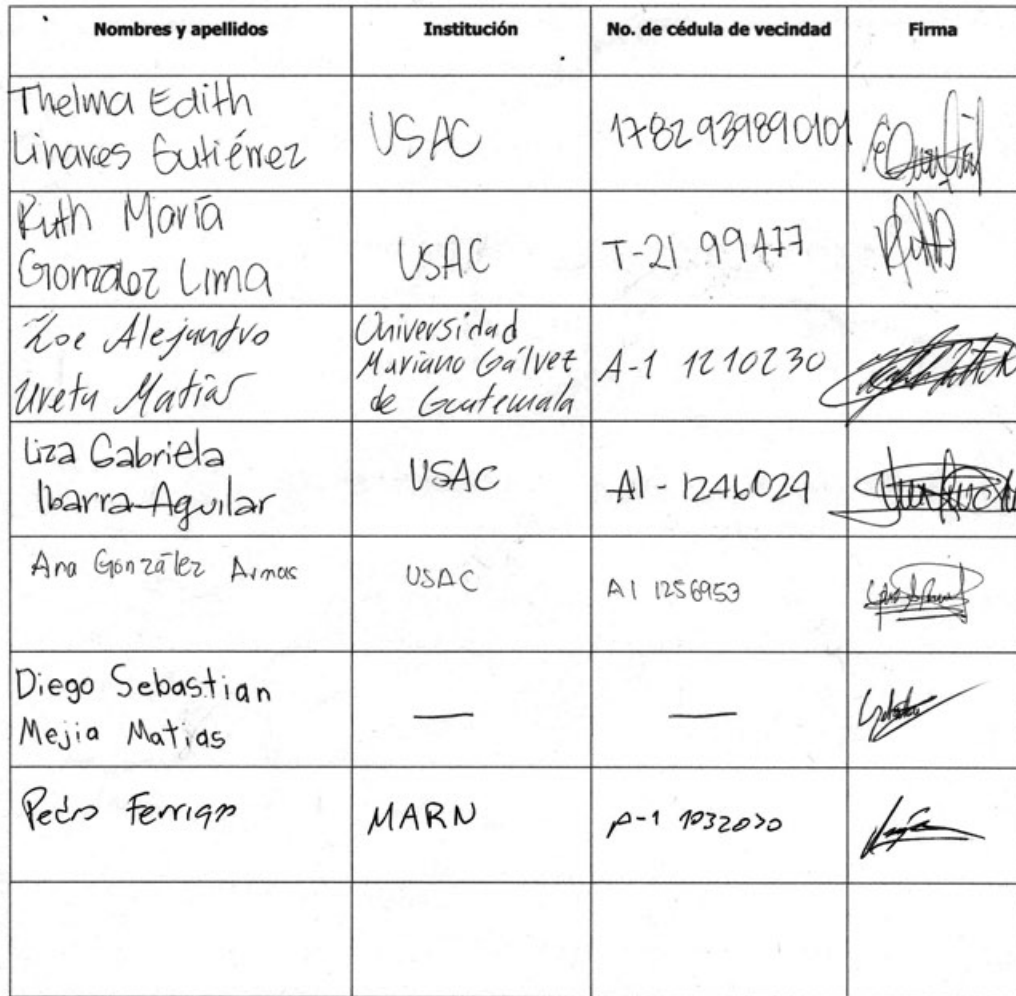 Nombres y apellidos Institución No. de cédula de vecindad Firma
Thelma Edith
Linares Gutiérrez USAC 1782939890101
Ruth María
González Lima USAC T-21 99477
Zoe Alejandro
Ureta Matías
Universidad
Mariano Gálvez
de Guatemala
A-1 1210230
Liza Gabriela
Ibarra Aguilar USAC A1-1246029
Ana González Armas USAC A1 1256953
Diego Sebastian
Mejia Matias — —
Pedro Ferrigno MARN A-1